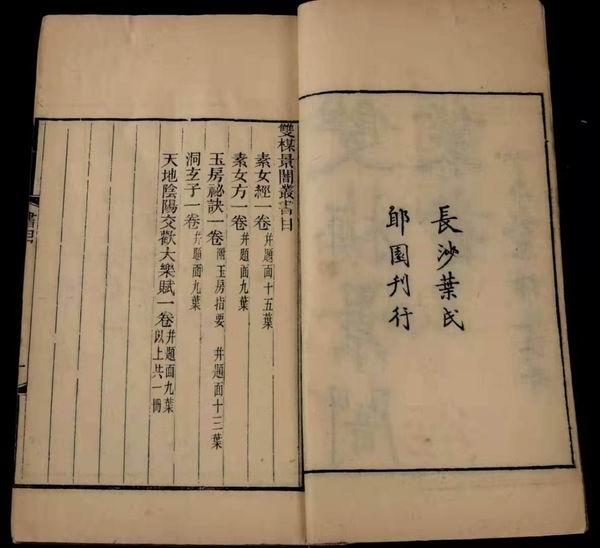 長沙葉氏
郋園刊行
雙楳景闇叢書目
素女經一卷并題面十五葉
素女方一卷并題面九葉
玉房祕訣一卷附玉房指要 并題面十三葉
洞玄子一卷并題面九葉
天地陰陽交歡大樂賦一卷并題面九葉以上共一冊
書目
一